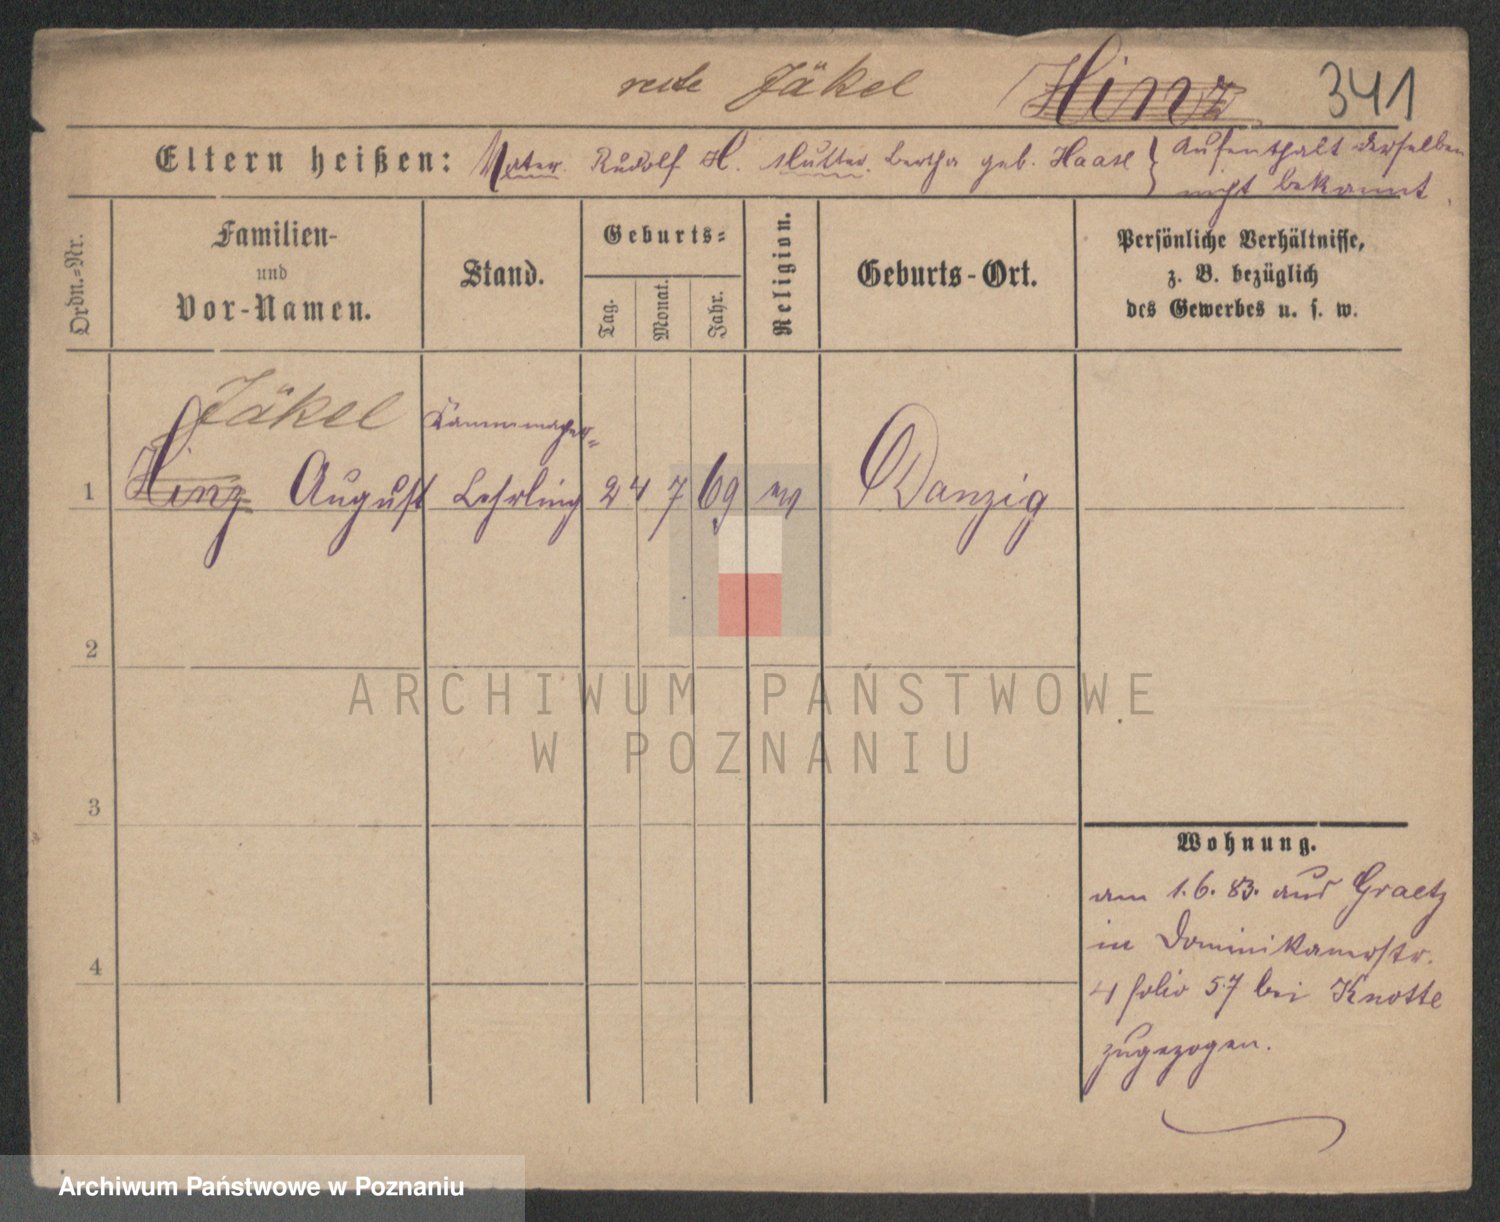 recte Jäkel Hinz 341
Eltern heißen: Vater Rudolf H. Mutter Bertha geb. Haase } Aufenthalt derselben
nicht bekannt.
Ordn.=Nr.
Familien-
und
Vor-Namen.
Stand.
Geburts=
Tag.
Monat.
Jahr.
Religion.
Geburts-Ort.
Persönliche Verhältnisse,
z. B. bezüglich
des Gewerbes u. s. w.
Jäkel Kammmacher=
1 Hinz August Lehrling 24 7 69 Danzig
2
ARCHIWUM PAŃSTWOWE
W POZNANIU
3
Wohnung.
am 1.6.83. aus Graetz
in Dominikanerstr.
4 folio 57 bei Knotte
zugezogen.
4
Archiwum Państwowe w Poznaniu